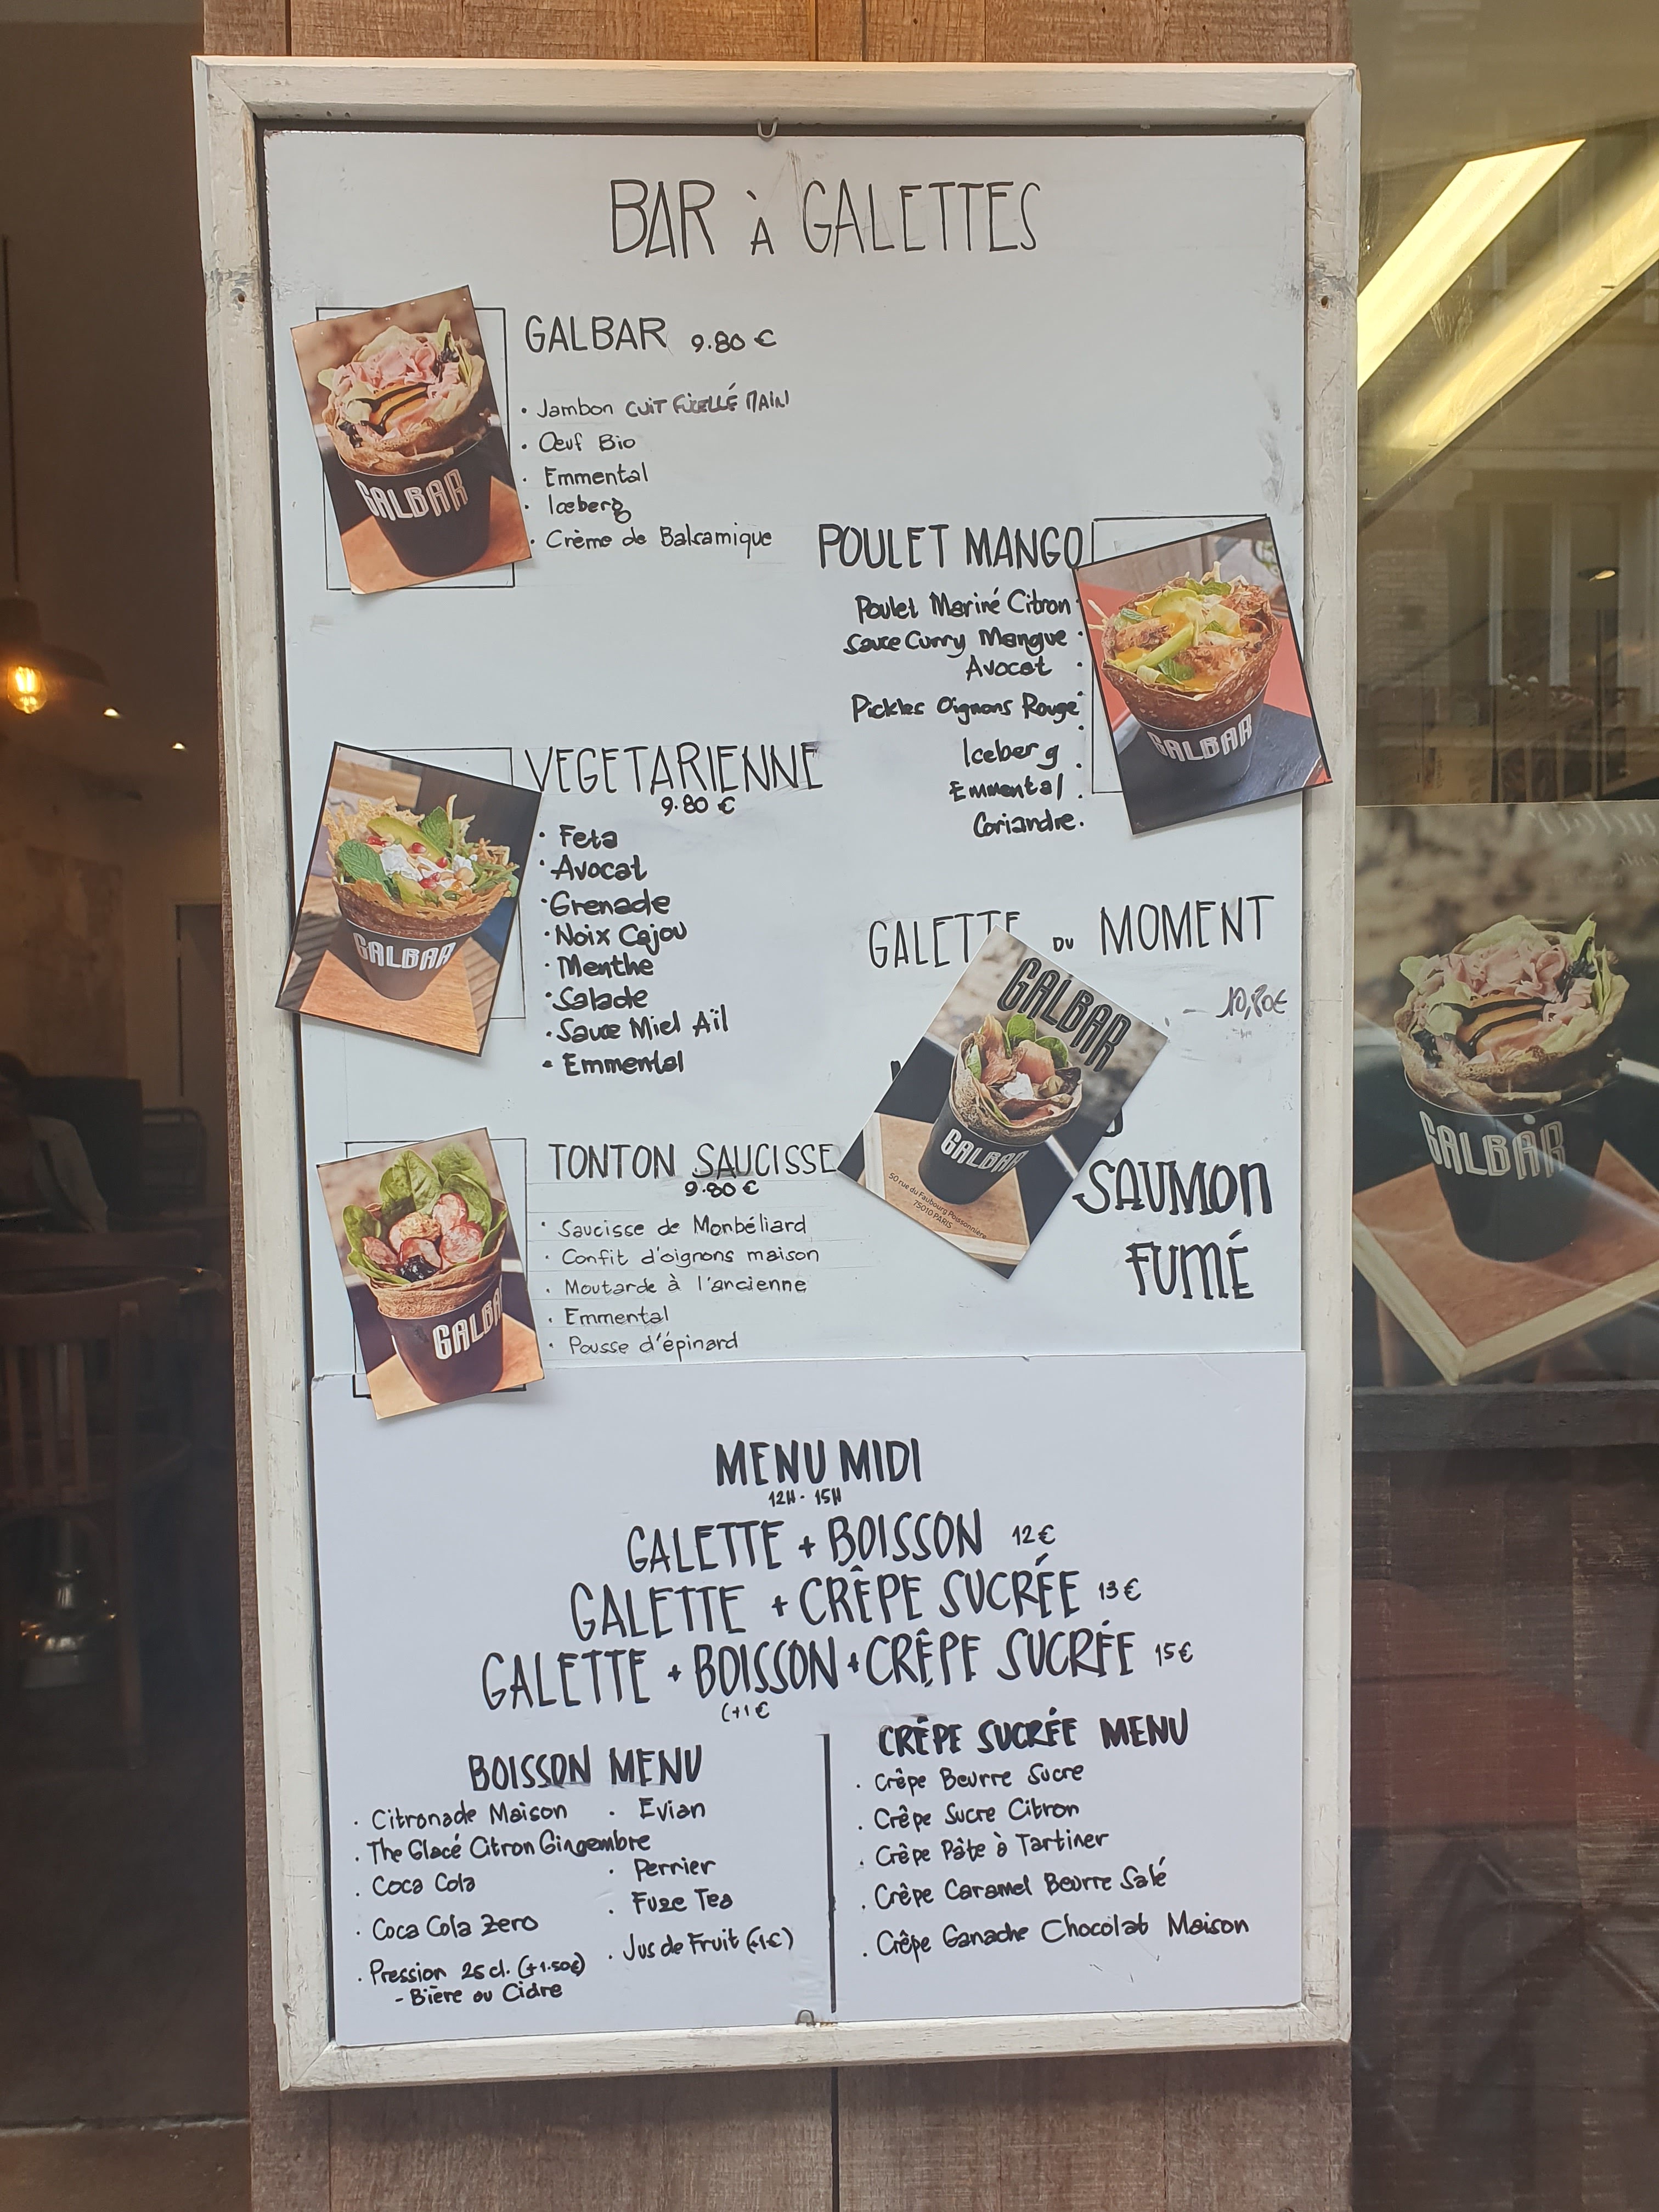 BAR À GALETTES
GALBAR 9.80 €
• Jambon CUIT FICELLÉ MAIN
• Œuf Bio
• Emmental
• Iceberg
• Crème de Balsamique
GALBAR
POULET MANGO
Poulet Mariné Citron •
Sauce Curry Mangue •
Avocat •
Pickles Oignons Rouge •
Iceberg •
Emmental •
Coriandre •
GALBAR
VEGETARIENNE
9.80 €
• Feta
• Avocat
• Grenade
• Noix Cajou
• Menthe
• Salade
• Sauce Miel Aïl
• Emmental
GALBAR
GALETTE DU MOMENT
GALBAR
GALBAR
50 rue du Faubourg Poissonnière
75010 PARIS
SAUMON
FUMÉ
TONTON SAUCISSE
9.80 €
• Saucisse de Monbéliard
• Confit d'oignons maison
• Moutarde à l'ancienne
• Emmental
• Pousse d'épinard
GALBA
GALBAR
MENU MIDI
12H - 15H
GALETTE + BOISSON 12€
GALETTE + CRÊPE SUCRÉE 13€
GALETTE + BOISSON + CRÊPE SUCRÉE 15€
(+1€
BOISSON MENU
• Citronade Maison
• The Glacé Citron Gingembre
• Coca Cola
• Coca Cola Zero
• Pression 25cl. (+1.50€)
- Bière ou Cidre
• Evian
• Perrier
• Fuze Tea
• Jus de Fruit (+1€)
CRÊPE SUCRÉE MENU
• Crêpe Beurre Sucre
• Crêpe Sucre Citron
• Crêpe Pâte à Tartiner
• Crêpe Caramel Beurre Salé
• Crêpe Ganache Chocolat Maison